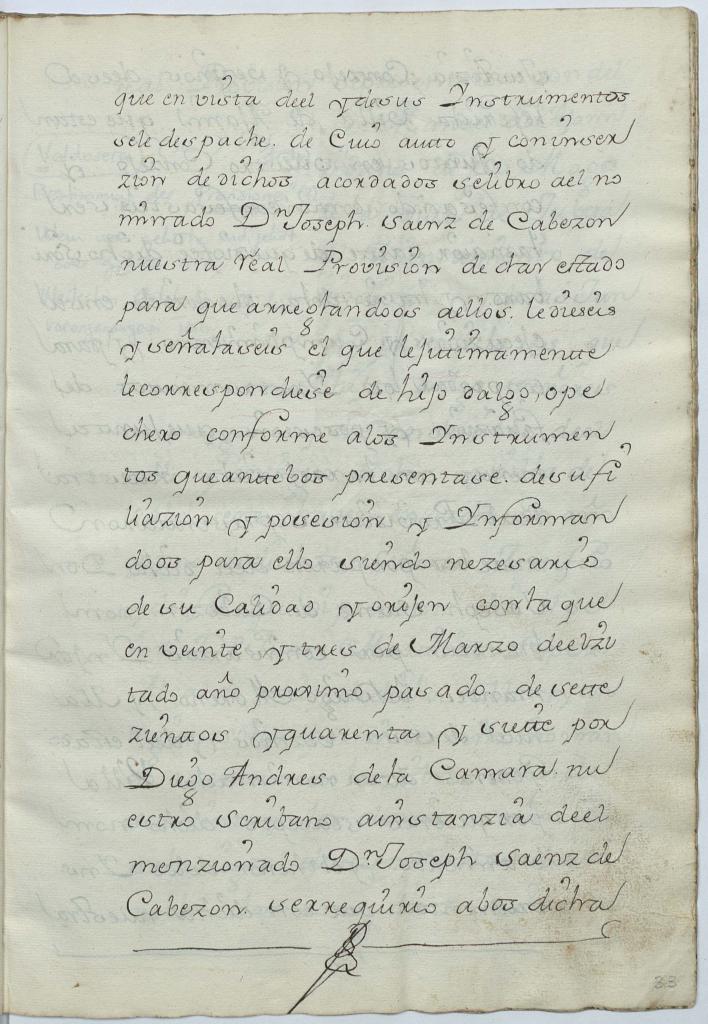 que en vista deel y de sus Ynstrumentos
sele despache. de Cuio autto y con inser
zion de dichos acordados se libro del no
minado Dn Joseph. Saenz de Cabezon
nuestra real Provision de dar estado
para que arreglandoos a ellos. le dieseis
y señalaseis el que lejitimamente
le correspondiese de hijo dalgo, o pe
chero conforme a los Ynstrumen
tos que antte bos presentase. de su fi
liazion y posesion y Ynforman
doos para ello siendo nezesario
de su Calidad y orijen con la que
en veinte y tres de Marzo deel zi
tado año proximo pasado de sette
zienttos y quarenta y siette por
Diego Andres de la Camara. nu
estro scribano a instanzia deel
menzionado Dn Joseph Saenz de
Cabezon. se rrequirio a bos dicha
33